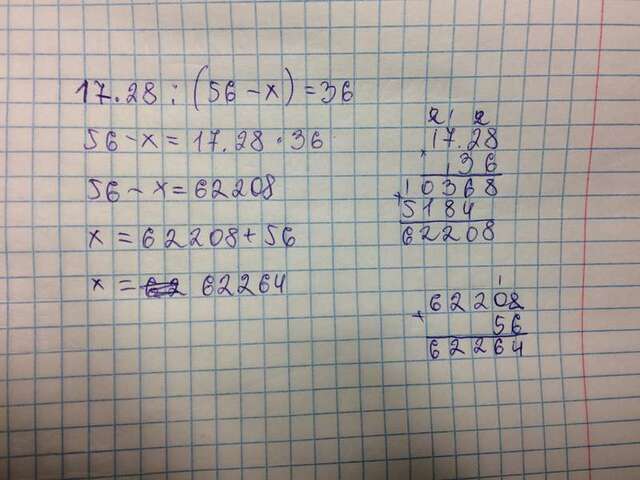 17.28 : (56 - x) = 36
56 - x = 17.28 · 36
56 - x = 62208
x = 62208 + 56
x = 62264
2 1 2
17.28
×
36
10368
+
5184
62208
1
+
62208
56
62264